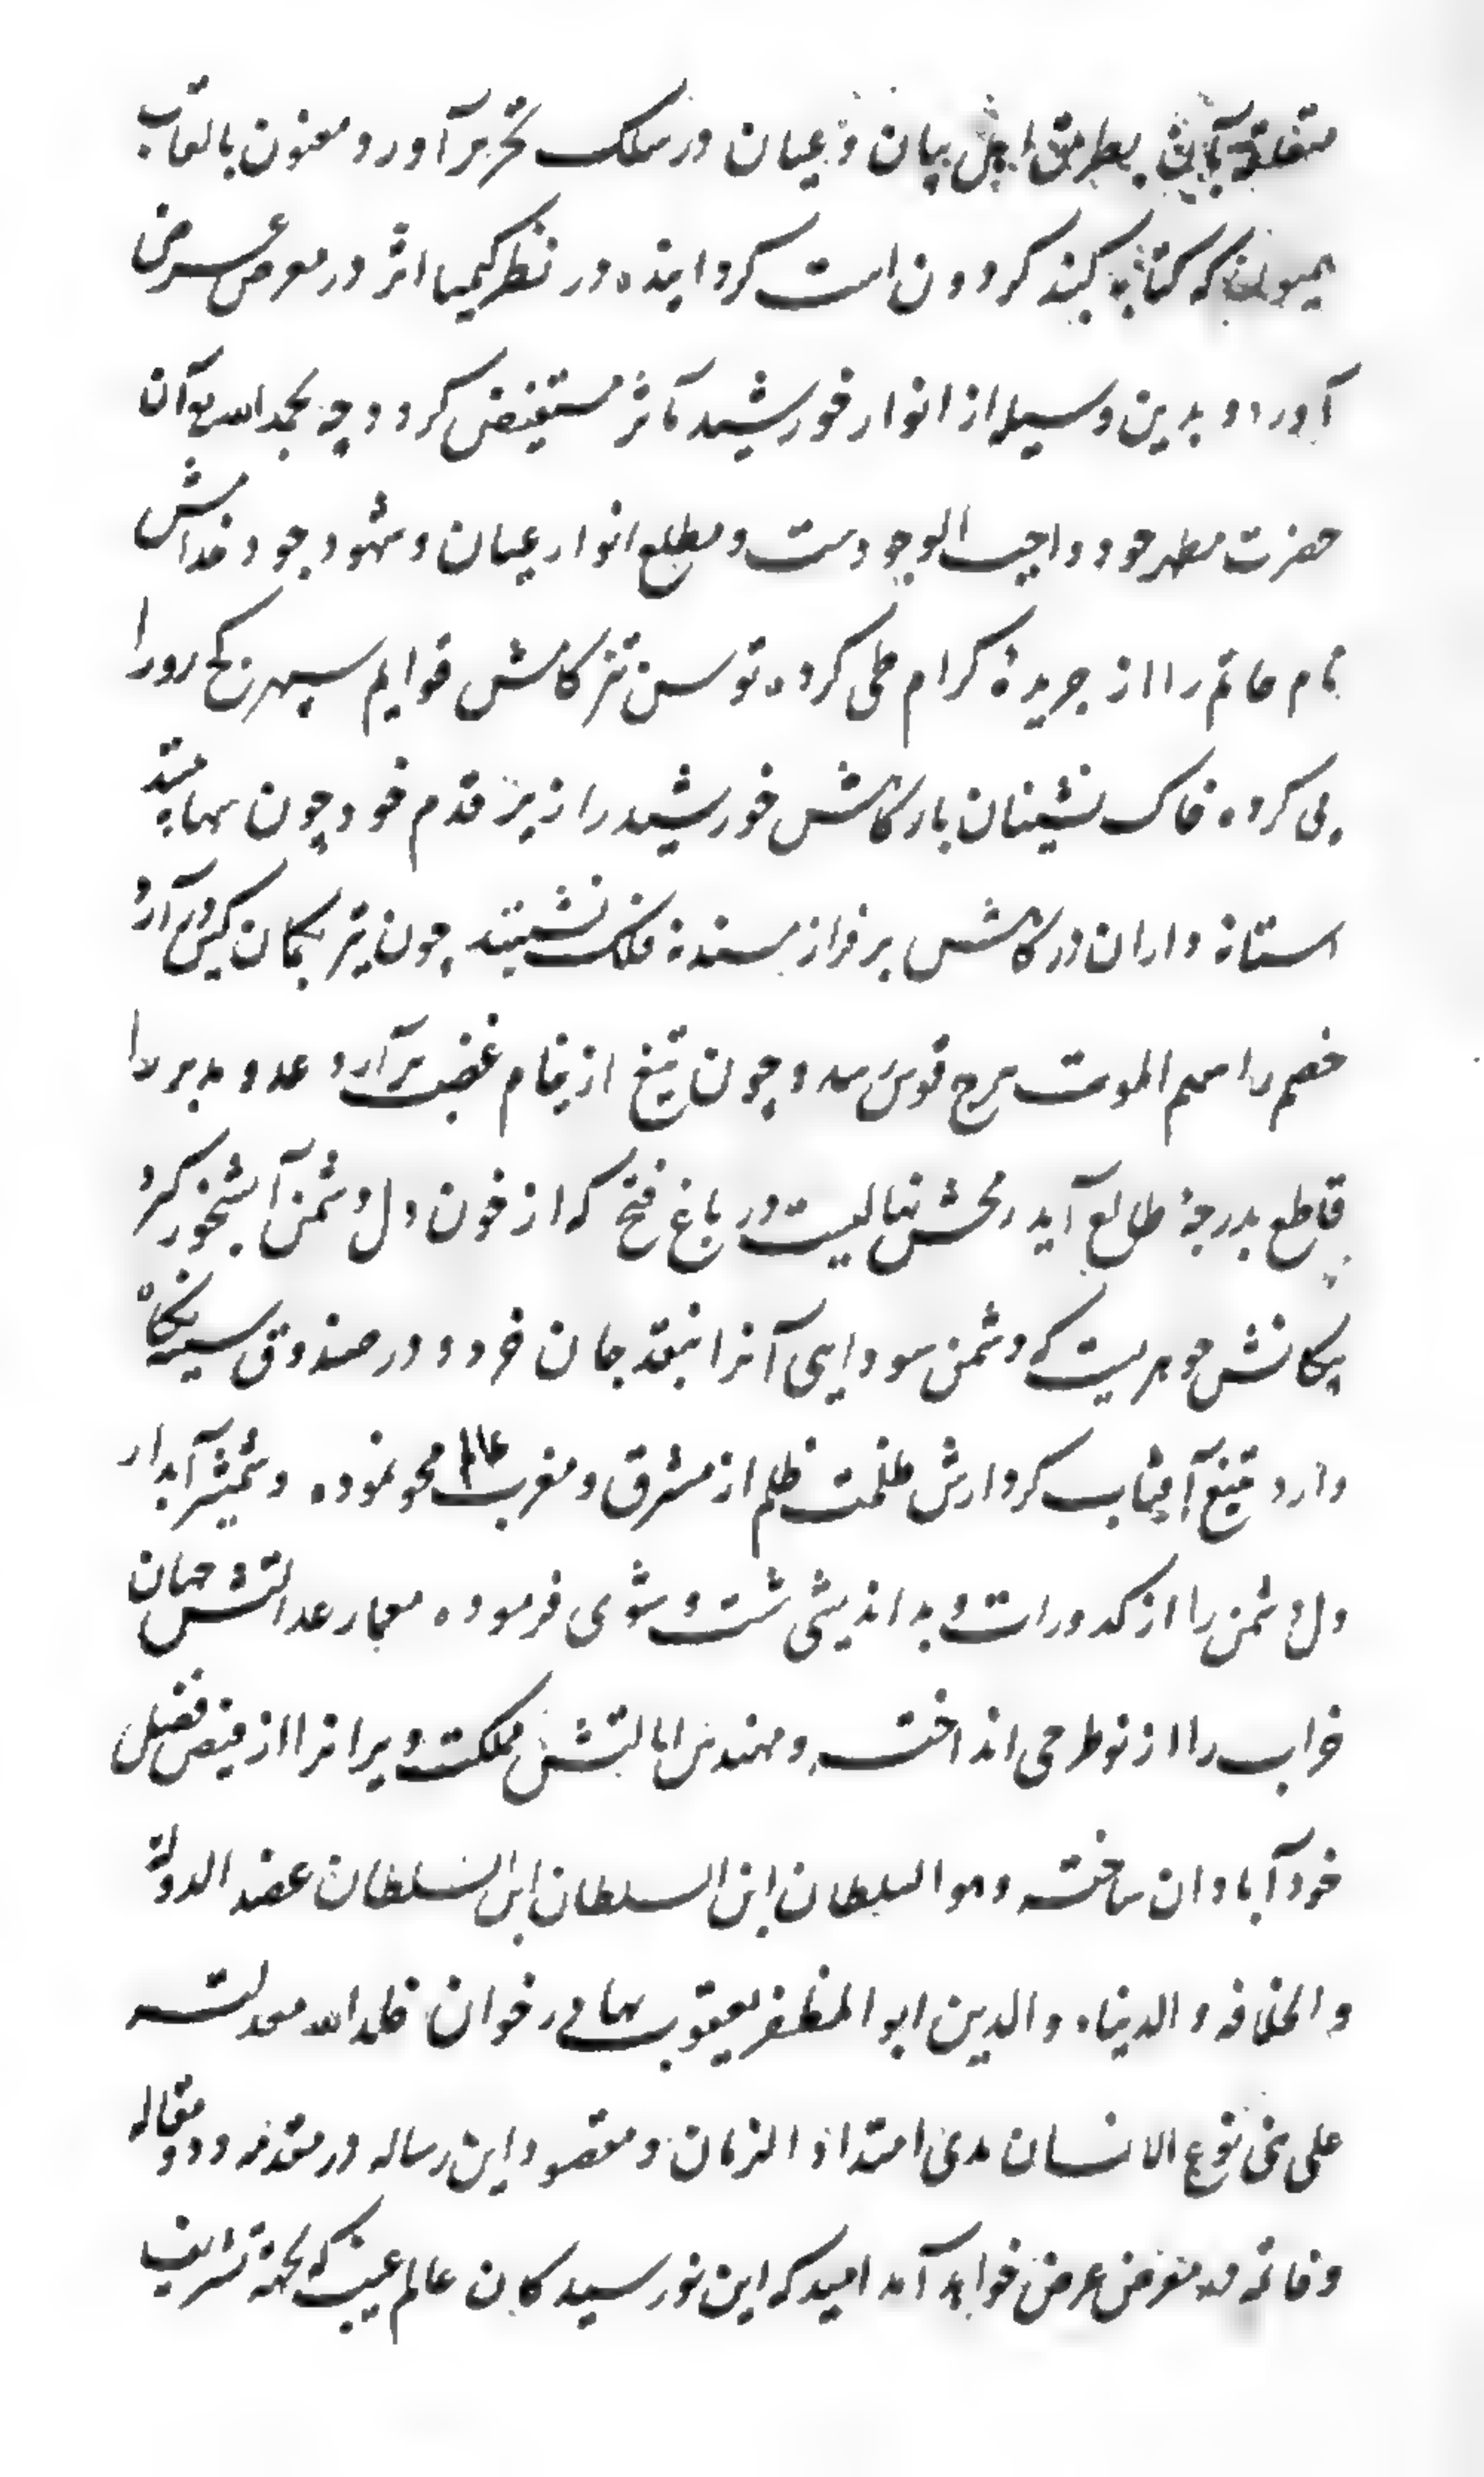 متعلقه بآن بطریق اهل بیان و عیان در سلک تحریر آورد و معنون بالقاب
همیون که کتابه گنبد کردونست کردانیده در نظر کیمیا اثر در معرض عرض
آورد و بدین وسیله از انوار خورشید مآثر مستفیض کردد چه بحمدالله که آن
حضرت مظهر جود واجب الوجودست و مطلع انوار عیان و شهود جود خدامش
نام حاتم را از جریدهٔ کرام طی کرده توسن تیز کامش قوایم سپهر کج رو را
پی کرده خاک نشینان بارکاهش خورشید را زیر قدم خود چون سها بینند
استانه داران درکاهش بر فراز مسند نه فلک نشینند چون تیر بکمان کین در آرد
خصم را سهم الموت ببرج قوس رسد و چون تیغ از نیام غضب برآرد عدو مدبر را
قاطع بدرجهٔ طالع آید رمحش نهالیست در باغ فتح که از خون دل دشمن آبشخور کرد
پیکانش جوهریست که دشمن سودایی آنرا بنقد جان خرد و در صندوق سینه نکاه
دارد تیغ آفتاب کردارش ظلمت ظلم از مشرق و مغرب عالم محو نموده و شمشیر آبدار
دل دشمن را از کدورات و بد اندیشی شست و شوی فرموده معمار عدالتش جهان
خراب را از نو طرحی انداخته و مهندس ایالتش مملکت ویرانرا از فیض فضل
خود آبادان ساخته و هو السلطان ابن السلطان ابن السلطان عضد الدوله
و الخلافه و الدنیاء و الدین ابو المظفر یعقوب بهادر خوان خلد الله معدلته
علی بنی نوع الانسان مدی امتداد الزمان و مقصود این رساله در مقدمه و دو مقاله
و خاتمه در معرض عرض خواهد آمد امید که این نورسیدکان عالم غیب که بجهة تشریف